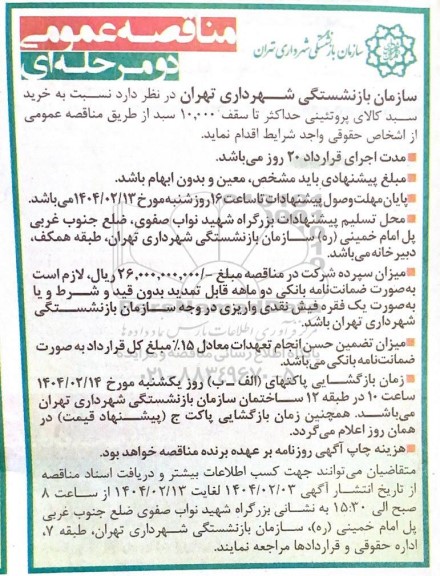 مناقصه عمومی
دو مرحله‌ای
سازمان بازنشستگی شهرداری تهران
سازمان بازنشستگی شهرداری تهران در نظر دارد نسبت به خرید
سبد کالای پروتئینی حداکثر تا سقف ۱۰,۰۰۰ سبد از طریق مناقصه عمومی
از اشخاص حقوقی واجد شرایط اقدام نماید.
■ مدت اجرای قرارداد ۲۰ روز می‌باشد.
■ مبلغ پیشنهادی باید مشخص، معین و بدون ابهام باشد.
■ پایان مهلت وصول پیشنهادات تا ساعت ۱۶ روز شنبه مورخ ۱۴۰۴/۰۲/۱۳ می‌باشد.
■ محل تسلیم پیشنهادات بزرگراه شهید نواب صفوی، ضلع جنوب غربی
پل امام خمینی (ره) سازمان بازنشستگی شهرداری تهران، طبقه همکف،
دبیرخانه می‌باشد.
■ میزان سپرده شرکت در مناقصه مبلغ -/۲۶,۰۰۰,۰۰۰,۰۰۰ ریال، لازم است
به‌صورت ضمانت‌نامه بانکی دو ماهه قابل تمدید بدون قید و شرط و یا
به‌صورت یک فقره فیش نقدی واریزی در وجه سازمان بازنشستگی
شهرداری تهران باشد.
■ میزان تضمین حسن انجام تعهدات معادل ۱۵٪ مبلغ کل قرارداد به صورت
ضمانت‌نامه بانکی می‌باشد.
■ زمان بازگشایی پاکتهای (الف ـ ب) روز یکشنبه مورخ ۱۴۰۴/۰۲/۱۴
ساعت ۱۰ در طبقه ۱۲ ساختمان سازمان بازنشستگی شهرداری تهران
می‌باشد. همچنین زمان بازگشایی پاکت ج (پیشنهاد قیمت) در
همان روز اعلام می‌گردد.
■ هزینه چاپ آگهی روزنامه بر عهده برنده مناقصه خواهد بود.
متقاضیان می‌توانند جهت کسب اطلاعات بیشتر و دریافت اسناد مناقصه
از تاریخ انتشار آگهی ۱۴۰۴/۰۲/۰۳ لغایت ۱۴۰۴/۰۲/۱۳ از ساعت ۸
صبح الی ۱۵:۳۰ به نشانی بزرگراه شهید نواب صفوی ضلع جنوب غربی
پل امام خمینی (ره)، سازمان بازنشستگی شهرداری تهران، طبقه ۷،
اداره حقوقی و قراردادها مراجعه نمایند.